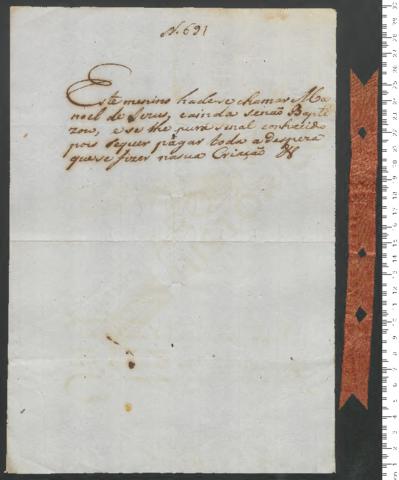 N. 691
Este menino hadese chamar Ma
noel de Jezus, eainda senaõ Bapti
zou, ese lhe pura sinal conhecido
pois sequer pagar toda adespeza
quese fizer nasua Criaçaõ